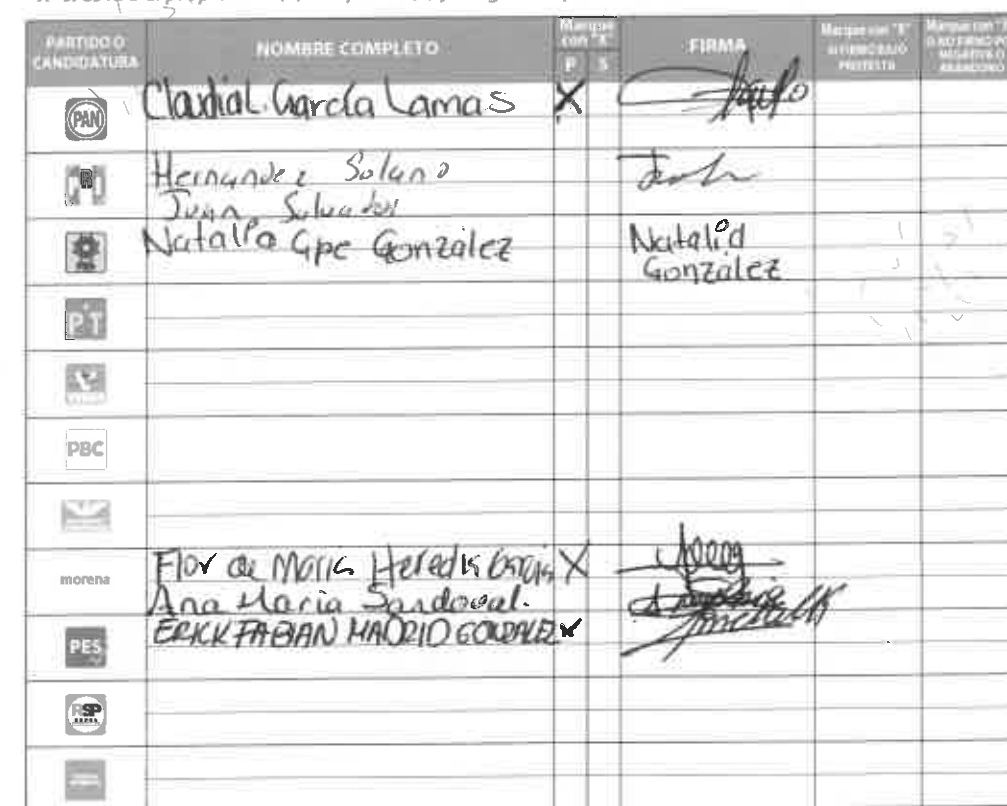 PARTIDO O CANDIDATURA
NOMBRE COMPLETO
Marque con "X"
P S
FIRMA
Marque con "X" SI FIRMÓ BAJO PROTESTA
Marque con
PAN
Claudia L. García Lamas X
R
Hernandez Solano
Juan Salvador
Natalia Gpe González
Natalia
González
PT
VERDE
PBC
morena
Flor de María Heredia García X
Ana María Sandoval.
PES
ERICK FABIAN MADRID GONZALEZ
RSP